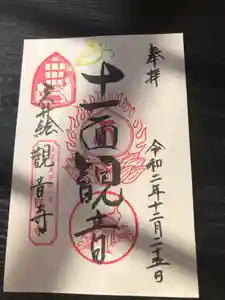 奉拝
令和二年十二月二十五日
十一面観音
天井絵
観音寺